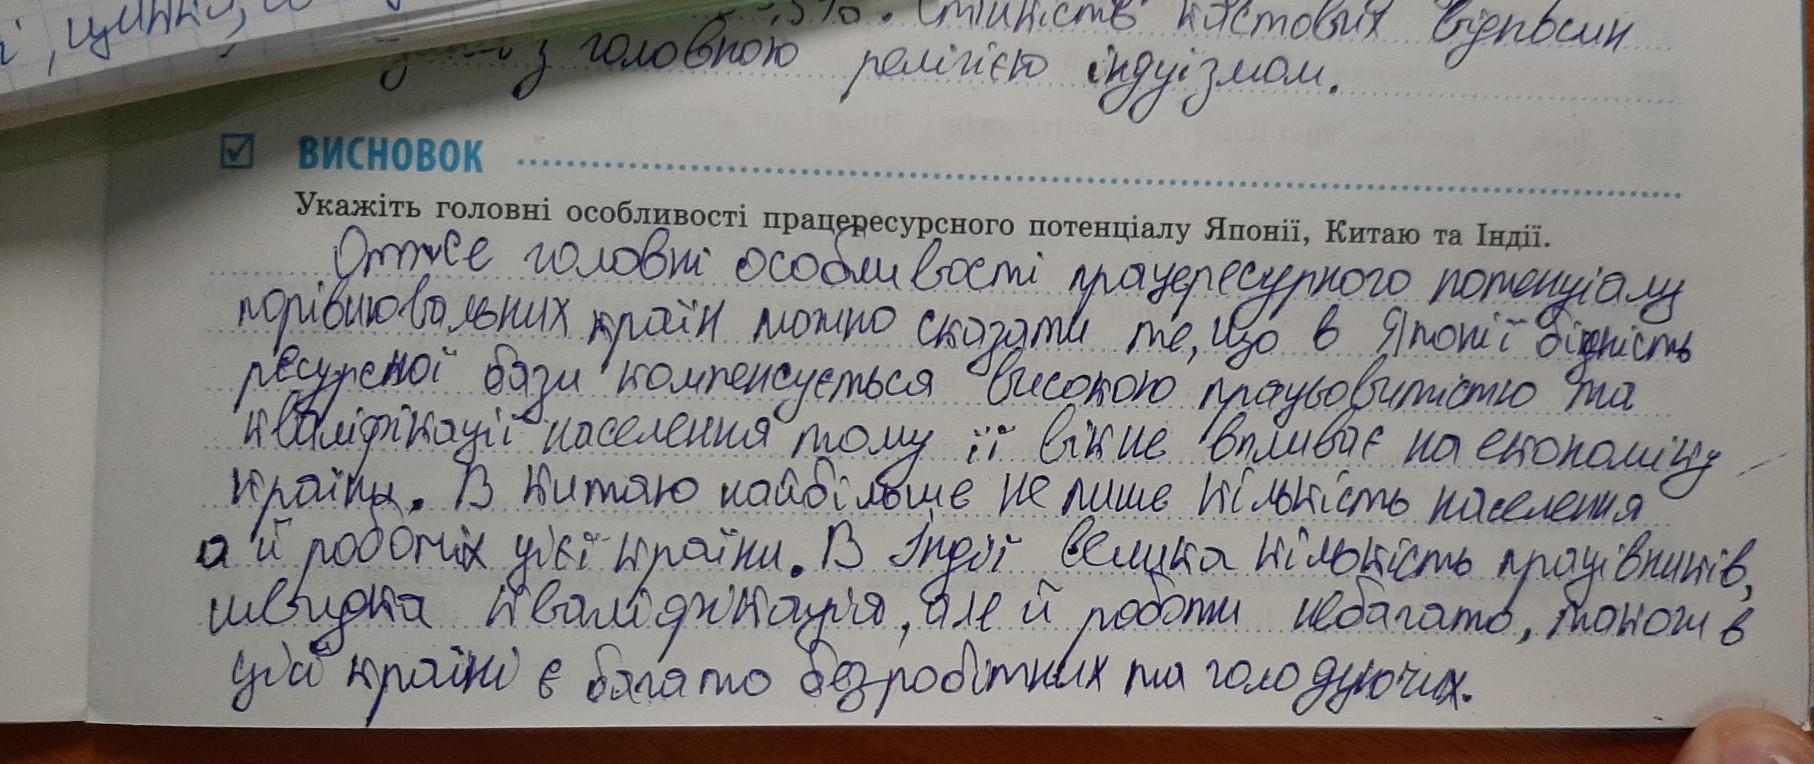 і, цинки,
,5%. Стійкість кастових відносин
з головною релігією індуїзмом.
ВИСНОВОК
Укажіть головні особливості працересурсного потенціалу Японії, Китаю та Індії.
Отже головні особливості працересурного потенціалу
порівнювальних країн можно сказати те, що в Японії бідність
ресурсної бази компенсується високою працьовитістю та
кваліфікації населення тому її вік не впливає на економіку
країни. В Китаю найбільше не лише кількість населення
а й робочих цієї країни. В Індії велика кількість працівників,
швидка кваліфікація, але й роботи небагато, також в
цій країні є багато безробітних та голодуючих.